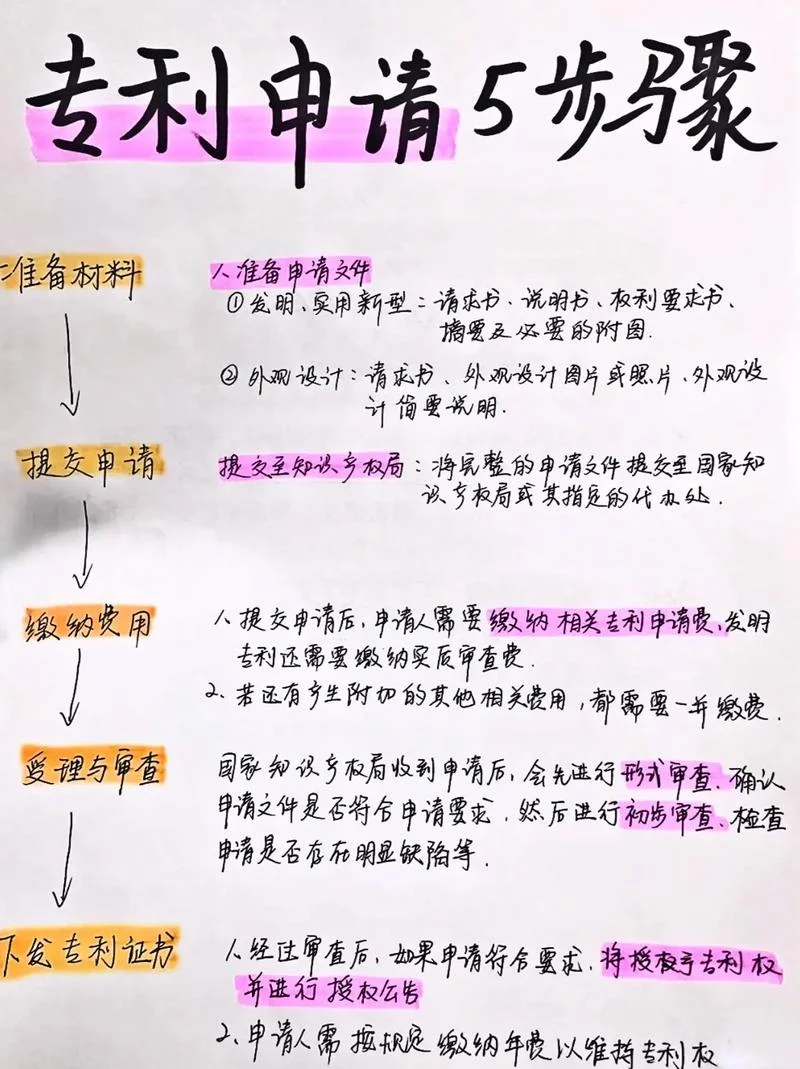 专利申请5步骤
准备材料
1、准备申请文件
①发明、实用新型：请求书、说明书、权利要求书、
摘要及必要的附图.
②外观设计：请求书、外观设计图片或照片、外观设
计简要说明.
提交申请
提交至知识产权局：将完整的申请文件提交至国家知
识产权局或其指定的代办处.
缴纳费用
1、提交申请后，申请人需要缴纳相关专利申请费，发明
专利还需要缴纳实质审查费.
2、若还有产生附加的其他相关费用，都需要一并缴费.
受理与审查
国家知识产权局收到申请后，会先进行形式审查、确认
申请文件是否符合申请要求，然后进行初步审查、检查
申请是否存在明显缺陷等.
下发专利证书
1、经过审查后，如果申请符合要求，将授权予专利权
并进行授权公告
2、申请人需按规定缴纳年费以维持专利权